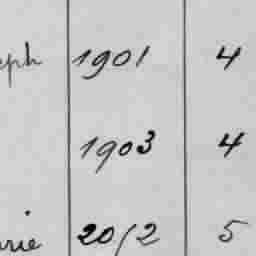 eph 1901 4
1903 4
rie 20/2 5